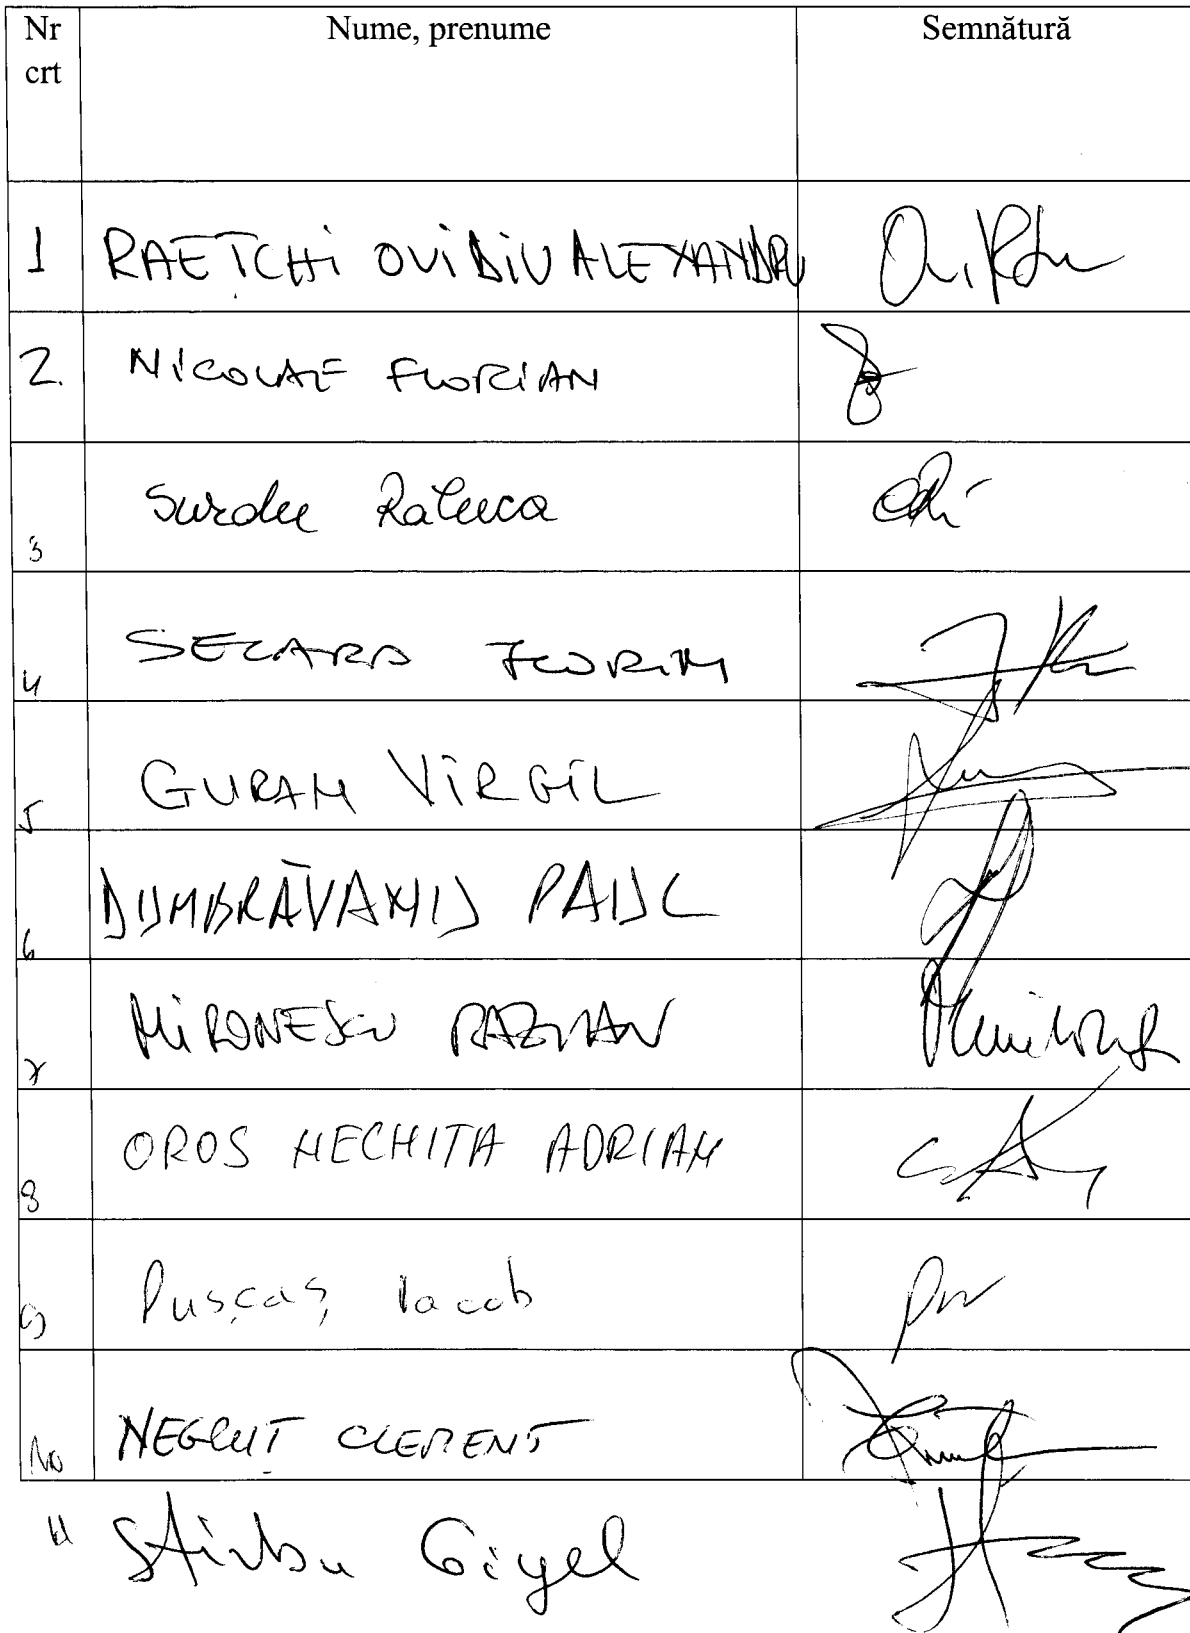 Nr crt Nume, prenume Semnătură
1 RAEȚCHI OVIDIU ALEXANDRU
2. NICOLAE FLORIAN
3 Surdu Raluca
4 SECARĂ FLORIN
5 GURAN VIRGIL
6 DUMBRĂVANU PAUL
7 MIRONESCU RAZVAN
8 OROS NECHITA ADRIAN
9 Pușcaș Iacob
10 NEGRUȚ CLEMENT
11 Stirbu Gigel